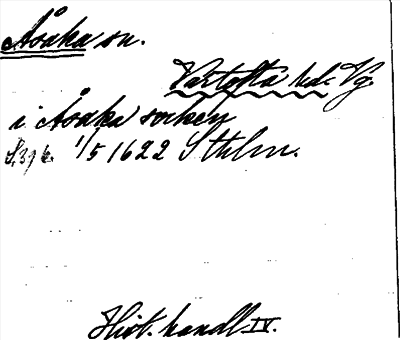 Åsaka sn.
Vartofta hd. Vg.
i Åsaka sochen
1/5 1622 Sthlm.
Hist. handl. IV.